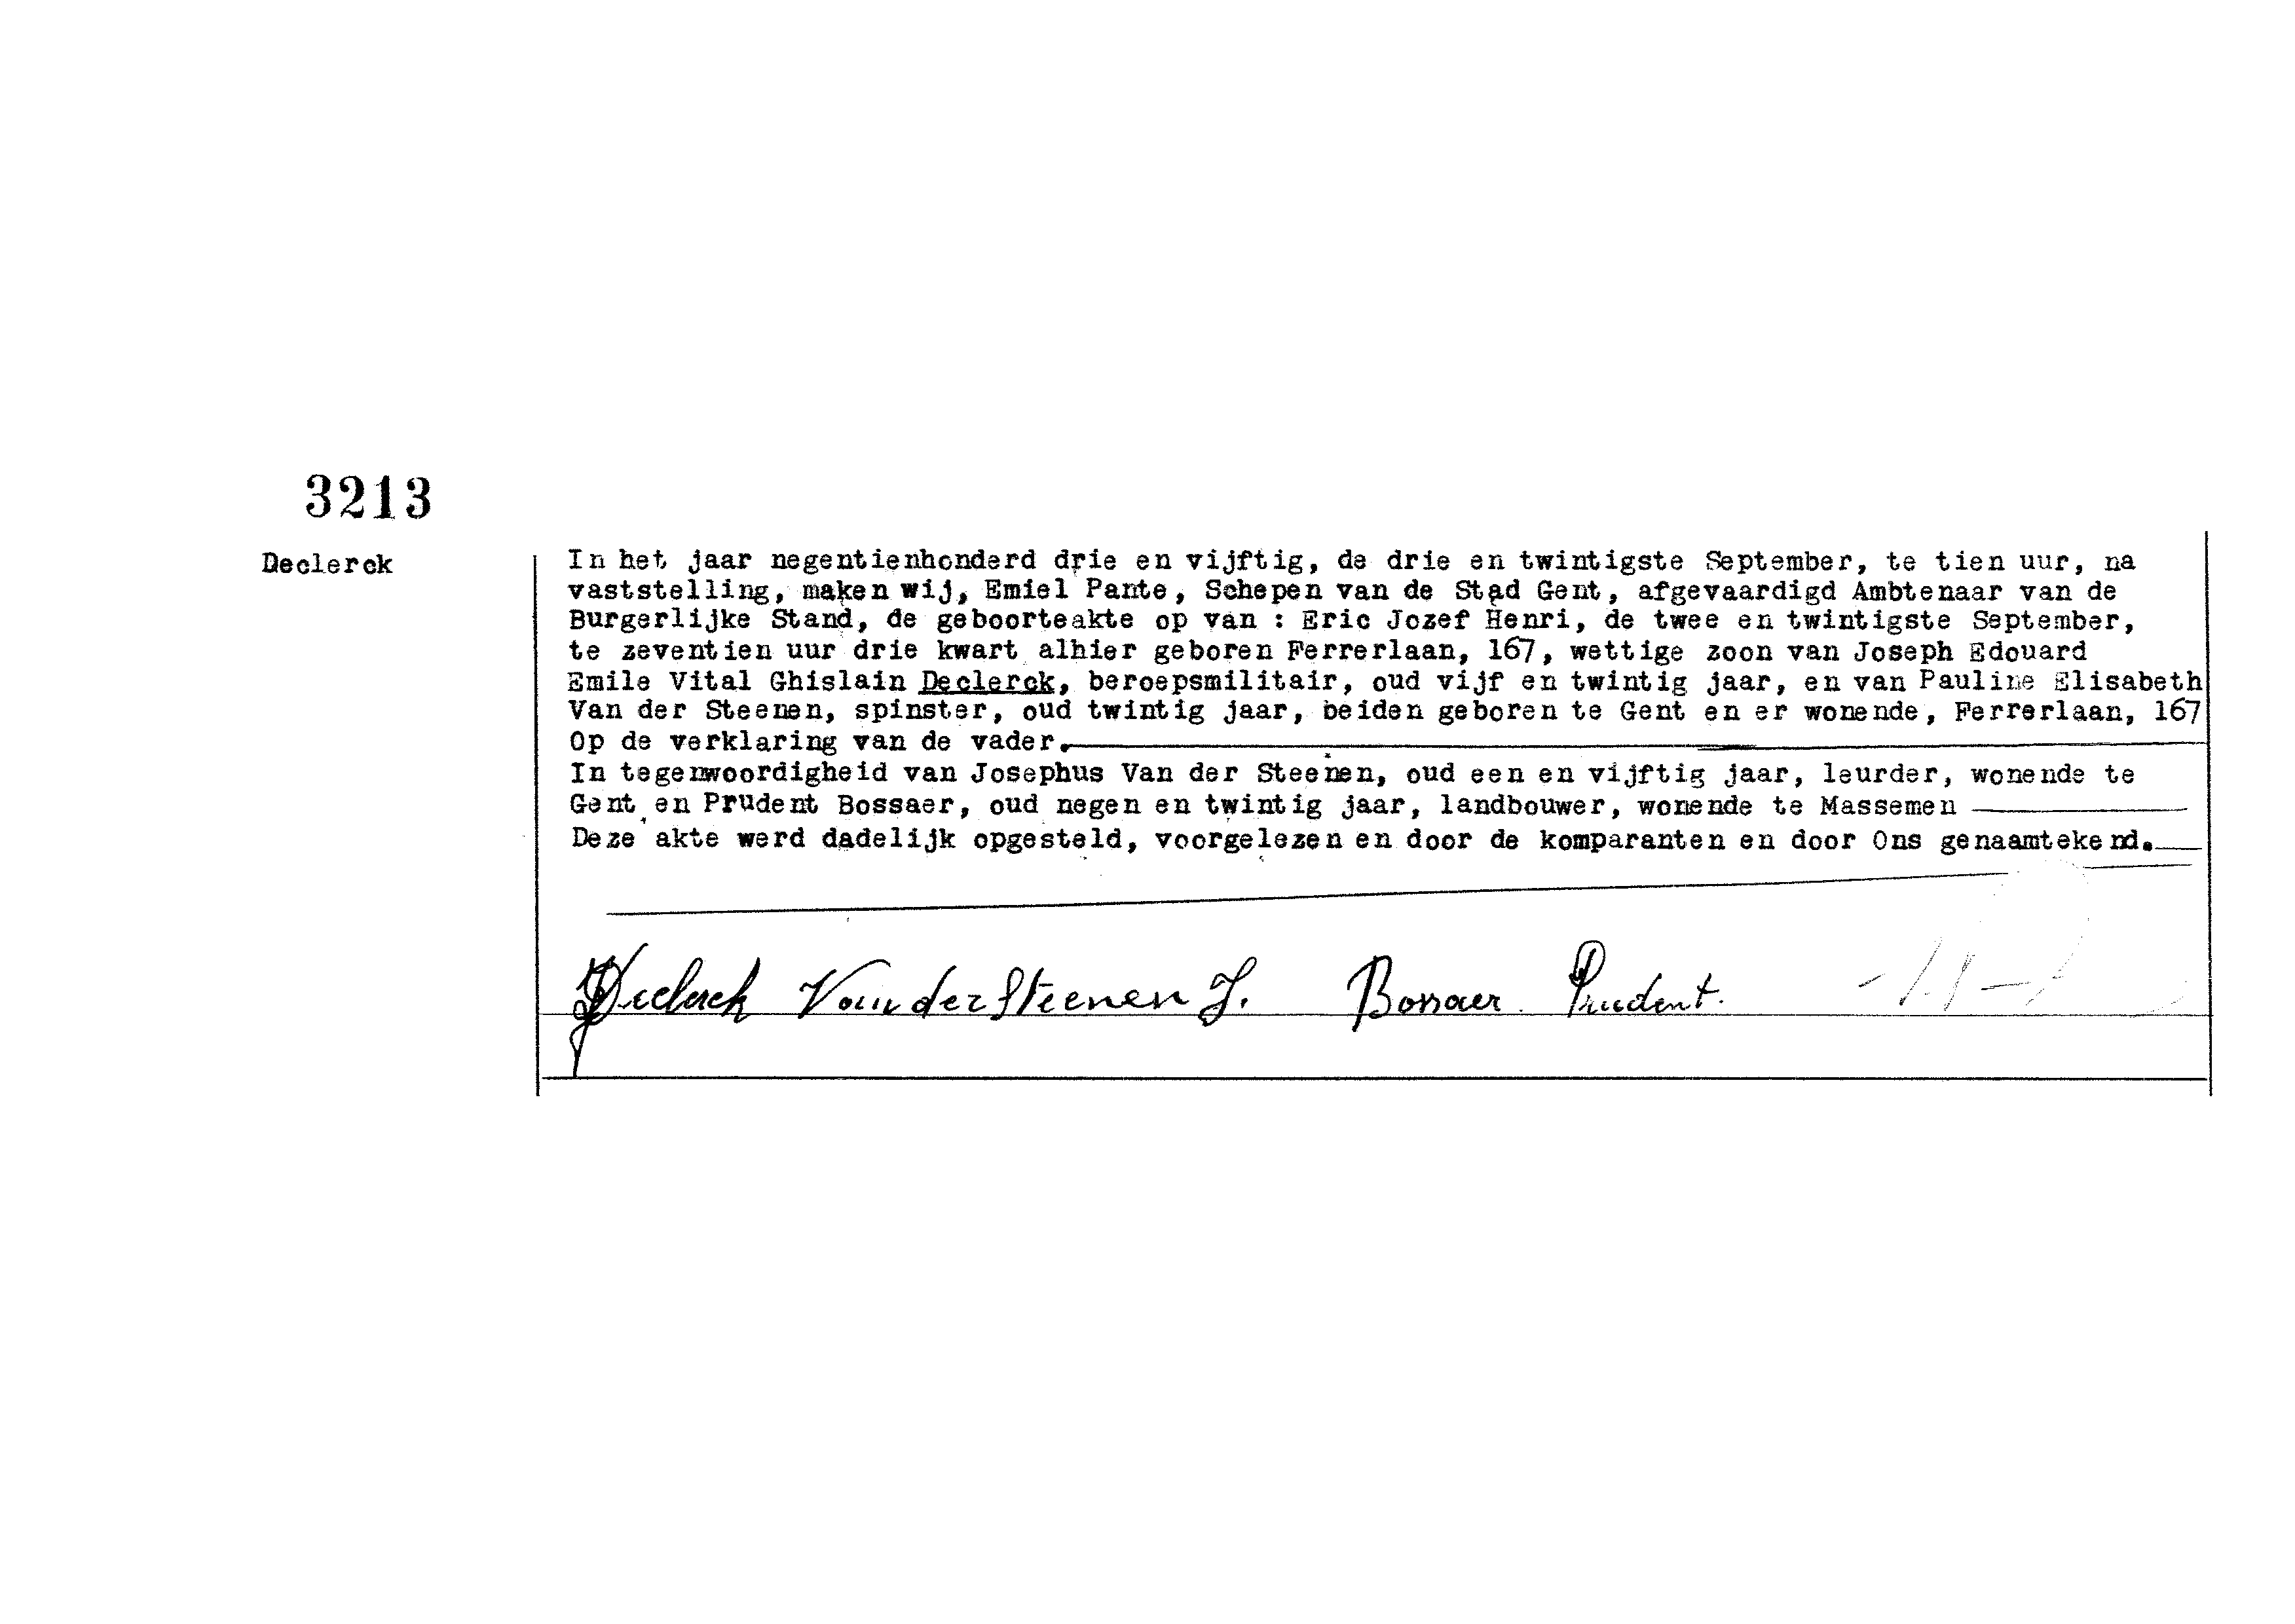 3213
Declerck
In het jaar negentienhonderd drie en vijftig, de drie en twintigste September, te tien uur, na
vaststelling, maken wij, Emiel Pante, Schepen van de Stad Gent, afgevaardigd Ambtenaar van de
Burgerlijke Stand, de geboorteakte op van : Eric Jozef Henri, de twee en twintigste September,
te zeventien uur drie kwart alhier geboren Ferrerlaan, 167, wettige zoon van Joseph Edouard
Emile Vital Ghislain Declerck, beroepsmilitair, oud vijf en twintig jaar, en van Pauline Elisabeth
Van der Steenen, spinster, oud twintig jaar, beiden geboren te Gent en er wonende, Ferrerlaan, 167
Op de verklaring van de vader.
In tegenwoordigheid van Josephus Van der Steenen, oud een en vijftig jaar, leurder, wonende te
Gent en Prudent Bossaer, oud negen en twintig jaar, landbouwer, wonende te Massemen
Deze akte werd dadelijk opgesteld, voorgelezen en door de komparanten en door Ons genaamtekend.
Declerck Van der Steenen J. Bossaer Prudent.